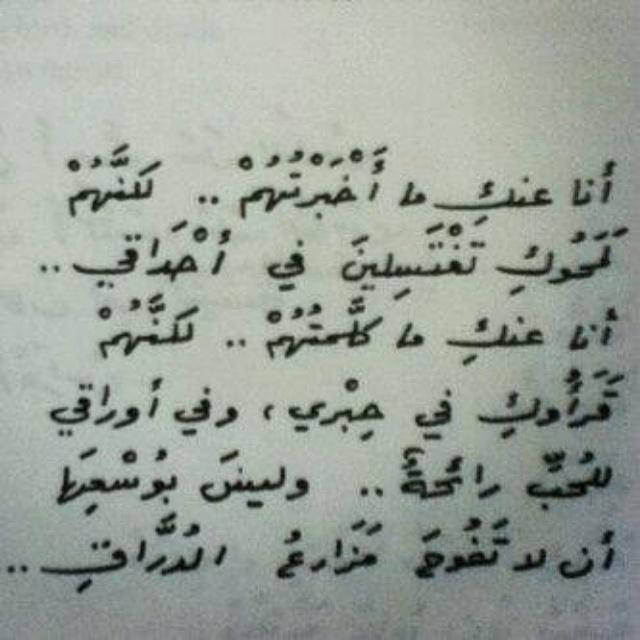 أنا عنكِ ما أَخْبَرْتُهُمْ .. لكنَّهُمْ
لَمَحُوكِ تَغْتَسِلينَ في أَحْدَاقي ..
أنا عنكِ ما كلَّمتُهُمْ .. لكنَّهُمْ
قَرَأُوكِ في حِبْري ، وفي أوراقي
للحُبِّ رائحةٌ .. وليسَ بوُسْعِهَا
أن لا تَفُوحَ مَزَارعُ الدُرَّاقِ ..